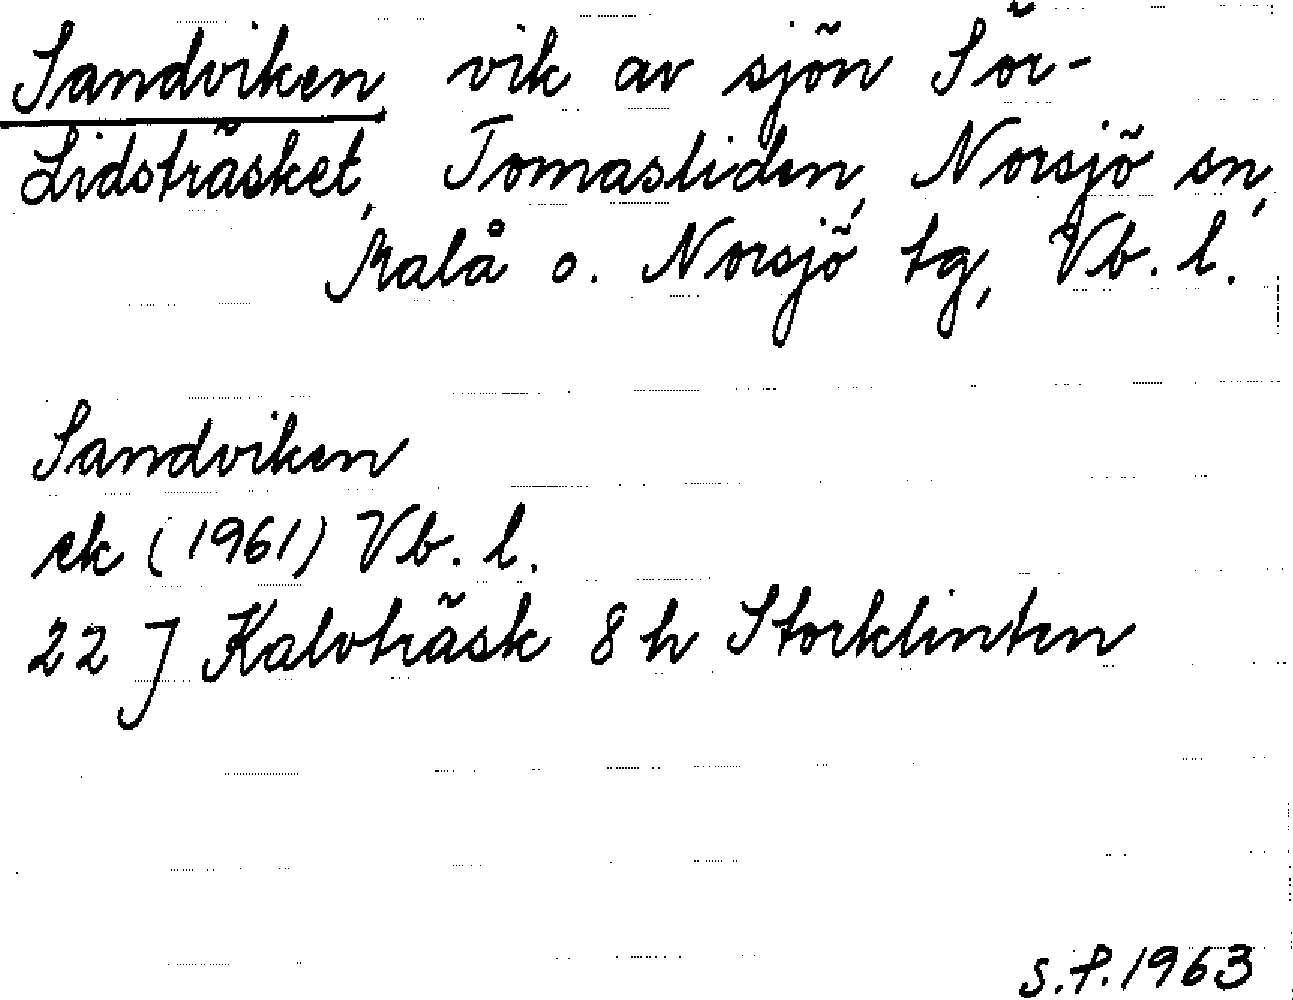 Sandviken vik av sjön Sör-
Lidsträsket, Tomasliden, Norsjö sn,
Malå o. Norsjö tg, Vb. l.
Sandviken
ek (1961) Vb. l.
22 J Kalvträsk 8 h Storklinten
S.P. 1963